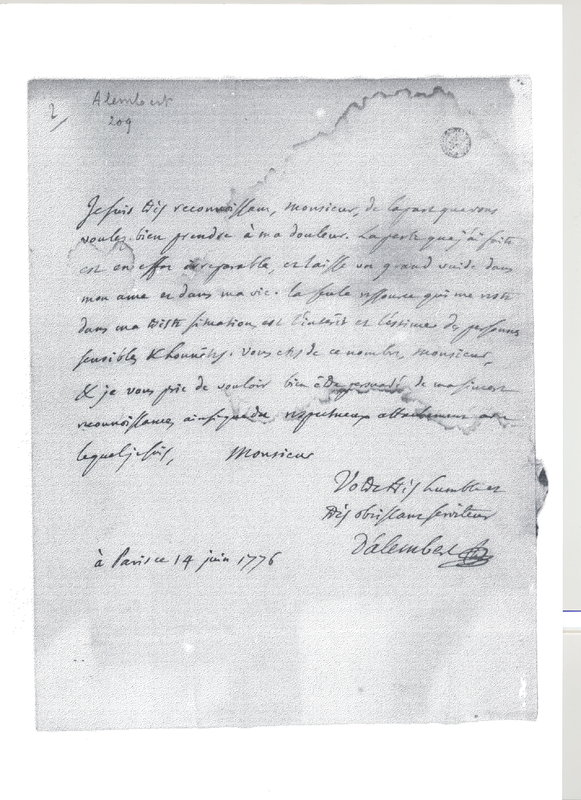 2/
Alembert
209
Je suis très reconnoissant, monsieur, de la part que vous
voulez bien prendre à ma douleur. La perte que j'ai faite
est en effet irreparable, et laisse un grand vuide dans
mon ame et dans ma vie. la seule ressource qui me reste
dans ma triste situation, est l'intérêt et l'estime des personnes
sensibles & honnêtes. vous etes de ce nombre, monsieur,
& je vous prie de vouloir bien être persuadé de ma sincere
reconnoissance, ainsi que du respectueux attachement avec
lequel je suis, Monsieur
Votre très humble et
très obeissant serviteur
D'alembert
à Paris ce 14 juin 1776